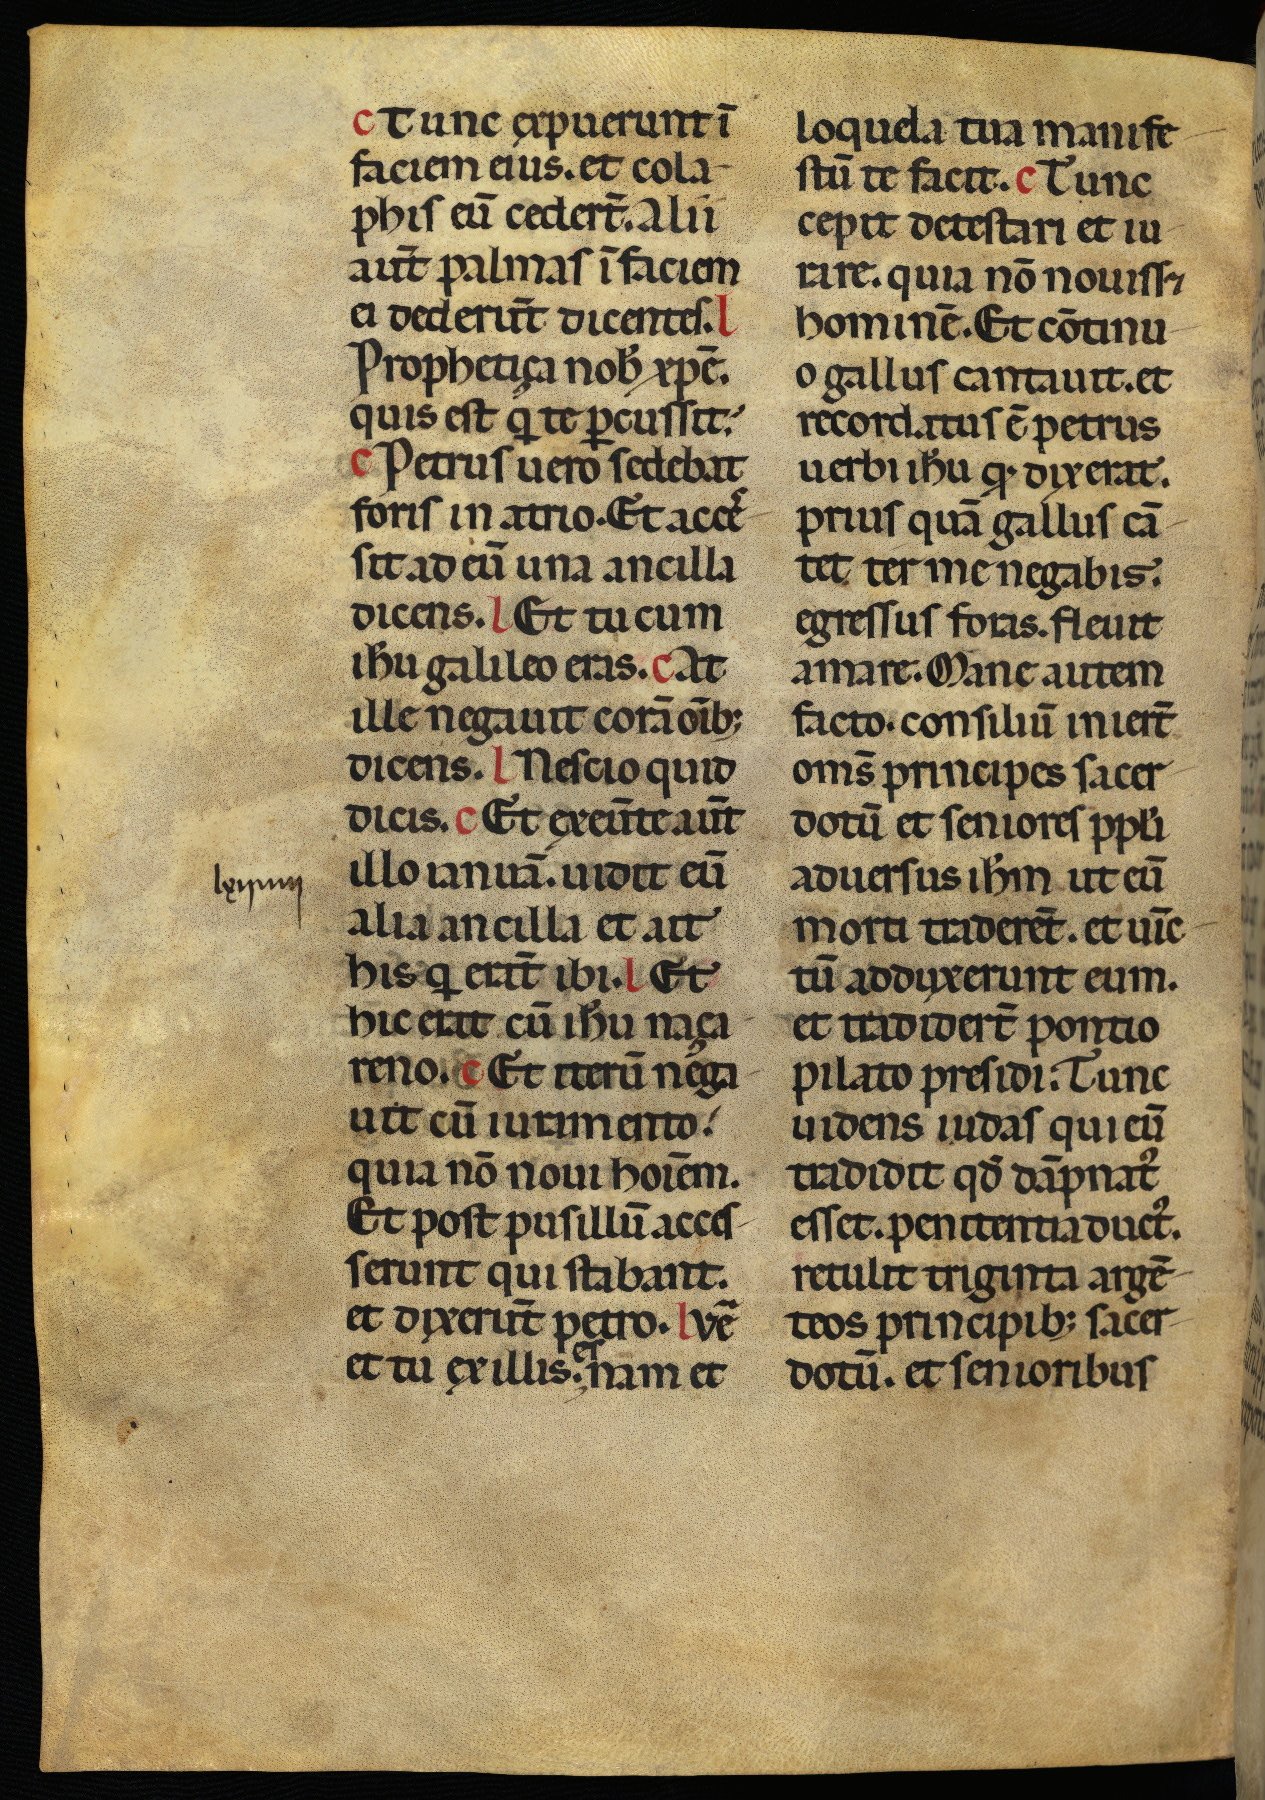 c Tunc expuerunt ī
faciem eius. et cola-
phis eū cedert̄. Alii
aut̄ palmas ī faciem
ei dederūt dicentes. l
Prophetiça nob̄ xp̄e.
quis est q̇ te ꝑcussit.
c Petrus uero sedebat
foris in atrio. Et acces-
sit ad eū una ancilla
dicens. l Et tu cum
ih̄u galileo eras. c At
ille negauit corā oīb;
dicens. l Nescio quid
dicis. c Et exeūte aūt
illo ianuā. uidit eū
alia ancilla et ait
his q̇ erāt ibi. l Et
hic erat cū ih̄u naça-
reno. c Et iterū nega-
uit cū iuramento.
quia nō noui hoīem.
Et post pusillū acces-
serunt qui stabant.
et dixerūt petro. l Vē
et tu ex illis es. nam et
loquela tua manife-
stū te facit. c Tunc
cepit detestari et iu-
rare. quia nō nouiss&
hominē. Et cōtinu-
o gallus cantauit. et
recordatus ē petrus
uerbi ih̄u qꝫ dixerat.
prius quā gallus cā-
tet ter me negabis.
egressus foras. fleuit
amare. Mane autem
facto. consiliū iniert̄
om̄s principes sacer-
dotū et seniores ppl̄i
aduersus ih̄m ut eū
morti traderēt. et uīc-
tū adduxerunt eum.
et tradidert̄ pontio
pilato presidi. Tunc
uidens iudas qui eū
tradidit qd̄ dāpnatꝰ
esset. penitentia ductꝰ.
retulit triginta argē-
teos principib; sacer-
dotū. et senioribus